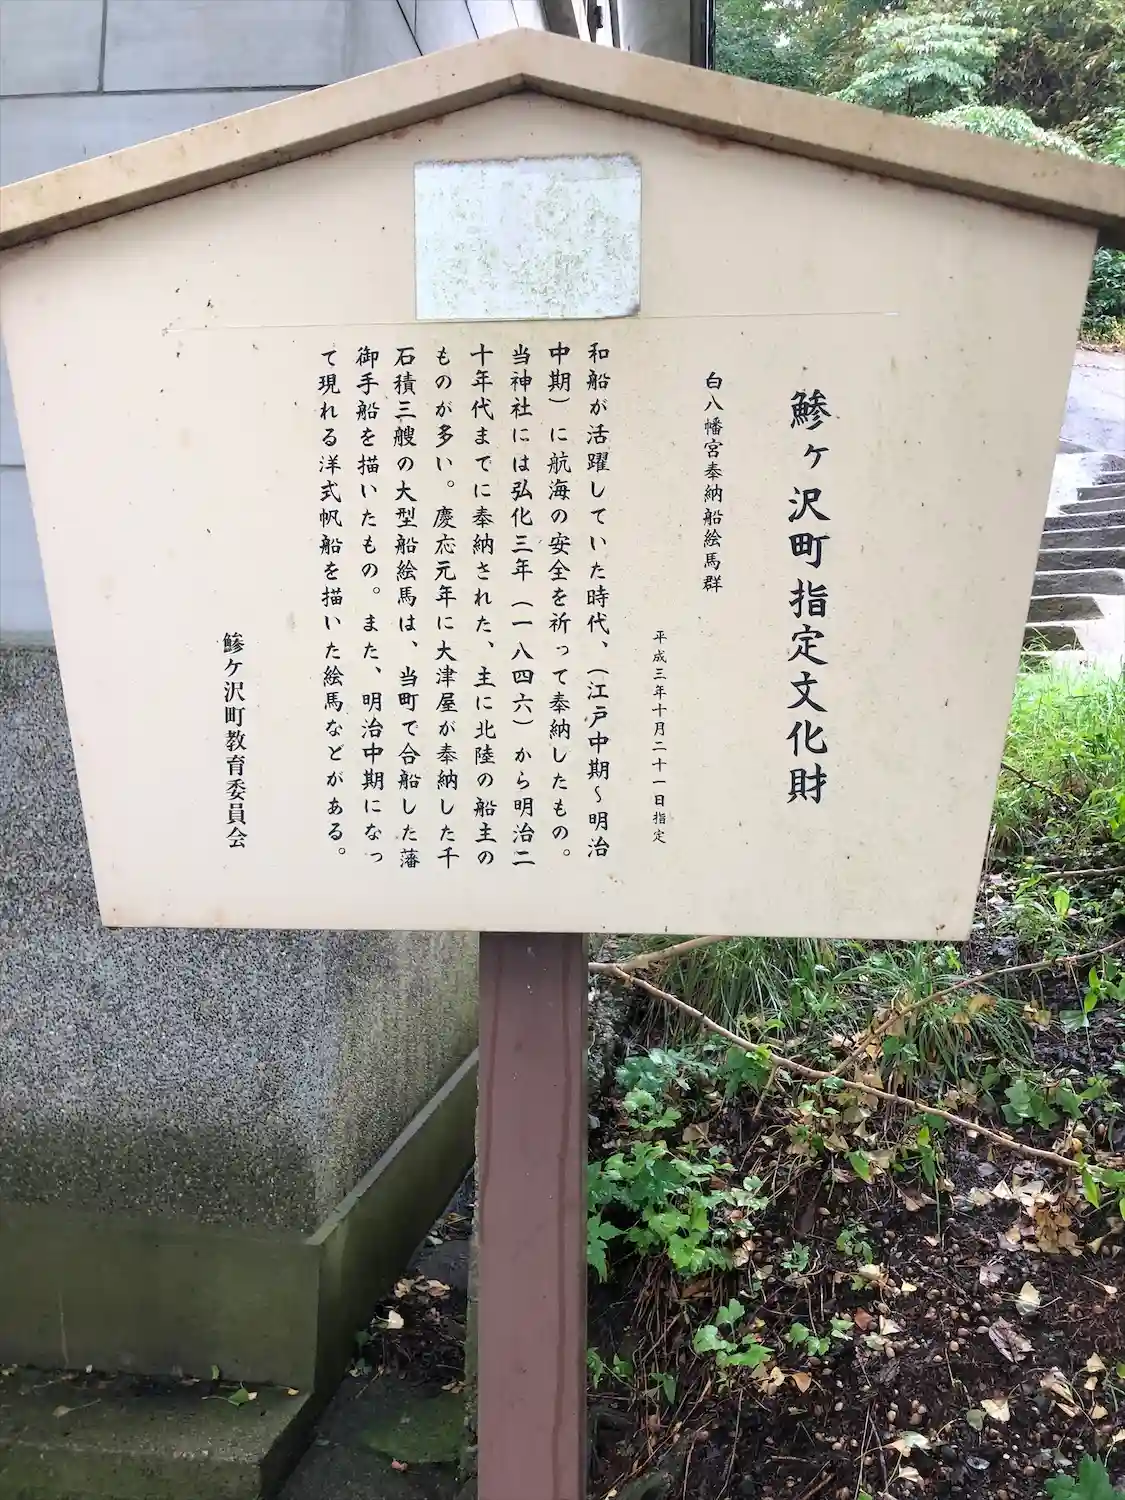 鰺ヶ沢町指定文化財
白八幡宮奉納船絵馬群
平成三年十月二十一日指定
和船が活躍していた時代、（江戸中期～明治
中期）に航海の安全を祈って奉納したもの。
当神社には弘化三年（一八四六）から明治二
十年代までに奉納された、主に北陸の船主の
ものが多い。慶応元年に大津屋が奉納した千
石積三艘の大型船絵馬は、当町で合船した藩
御手船を描いたもの。また、明治中期になっ
て現れる洋式帆船を描いた絵馬などがある。
鰺ケ沢町教育委員会